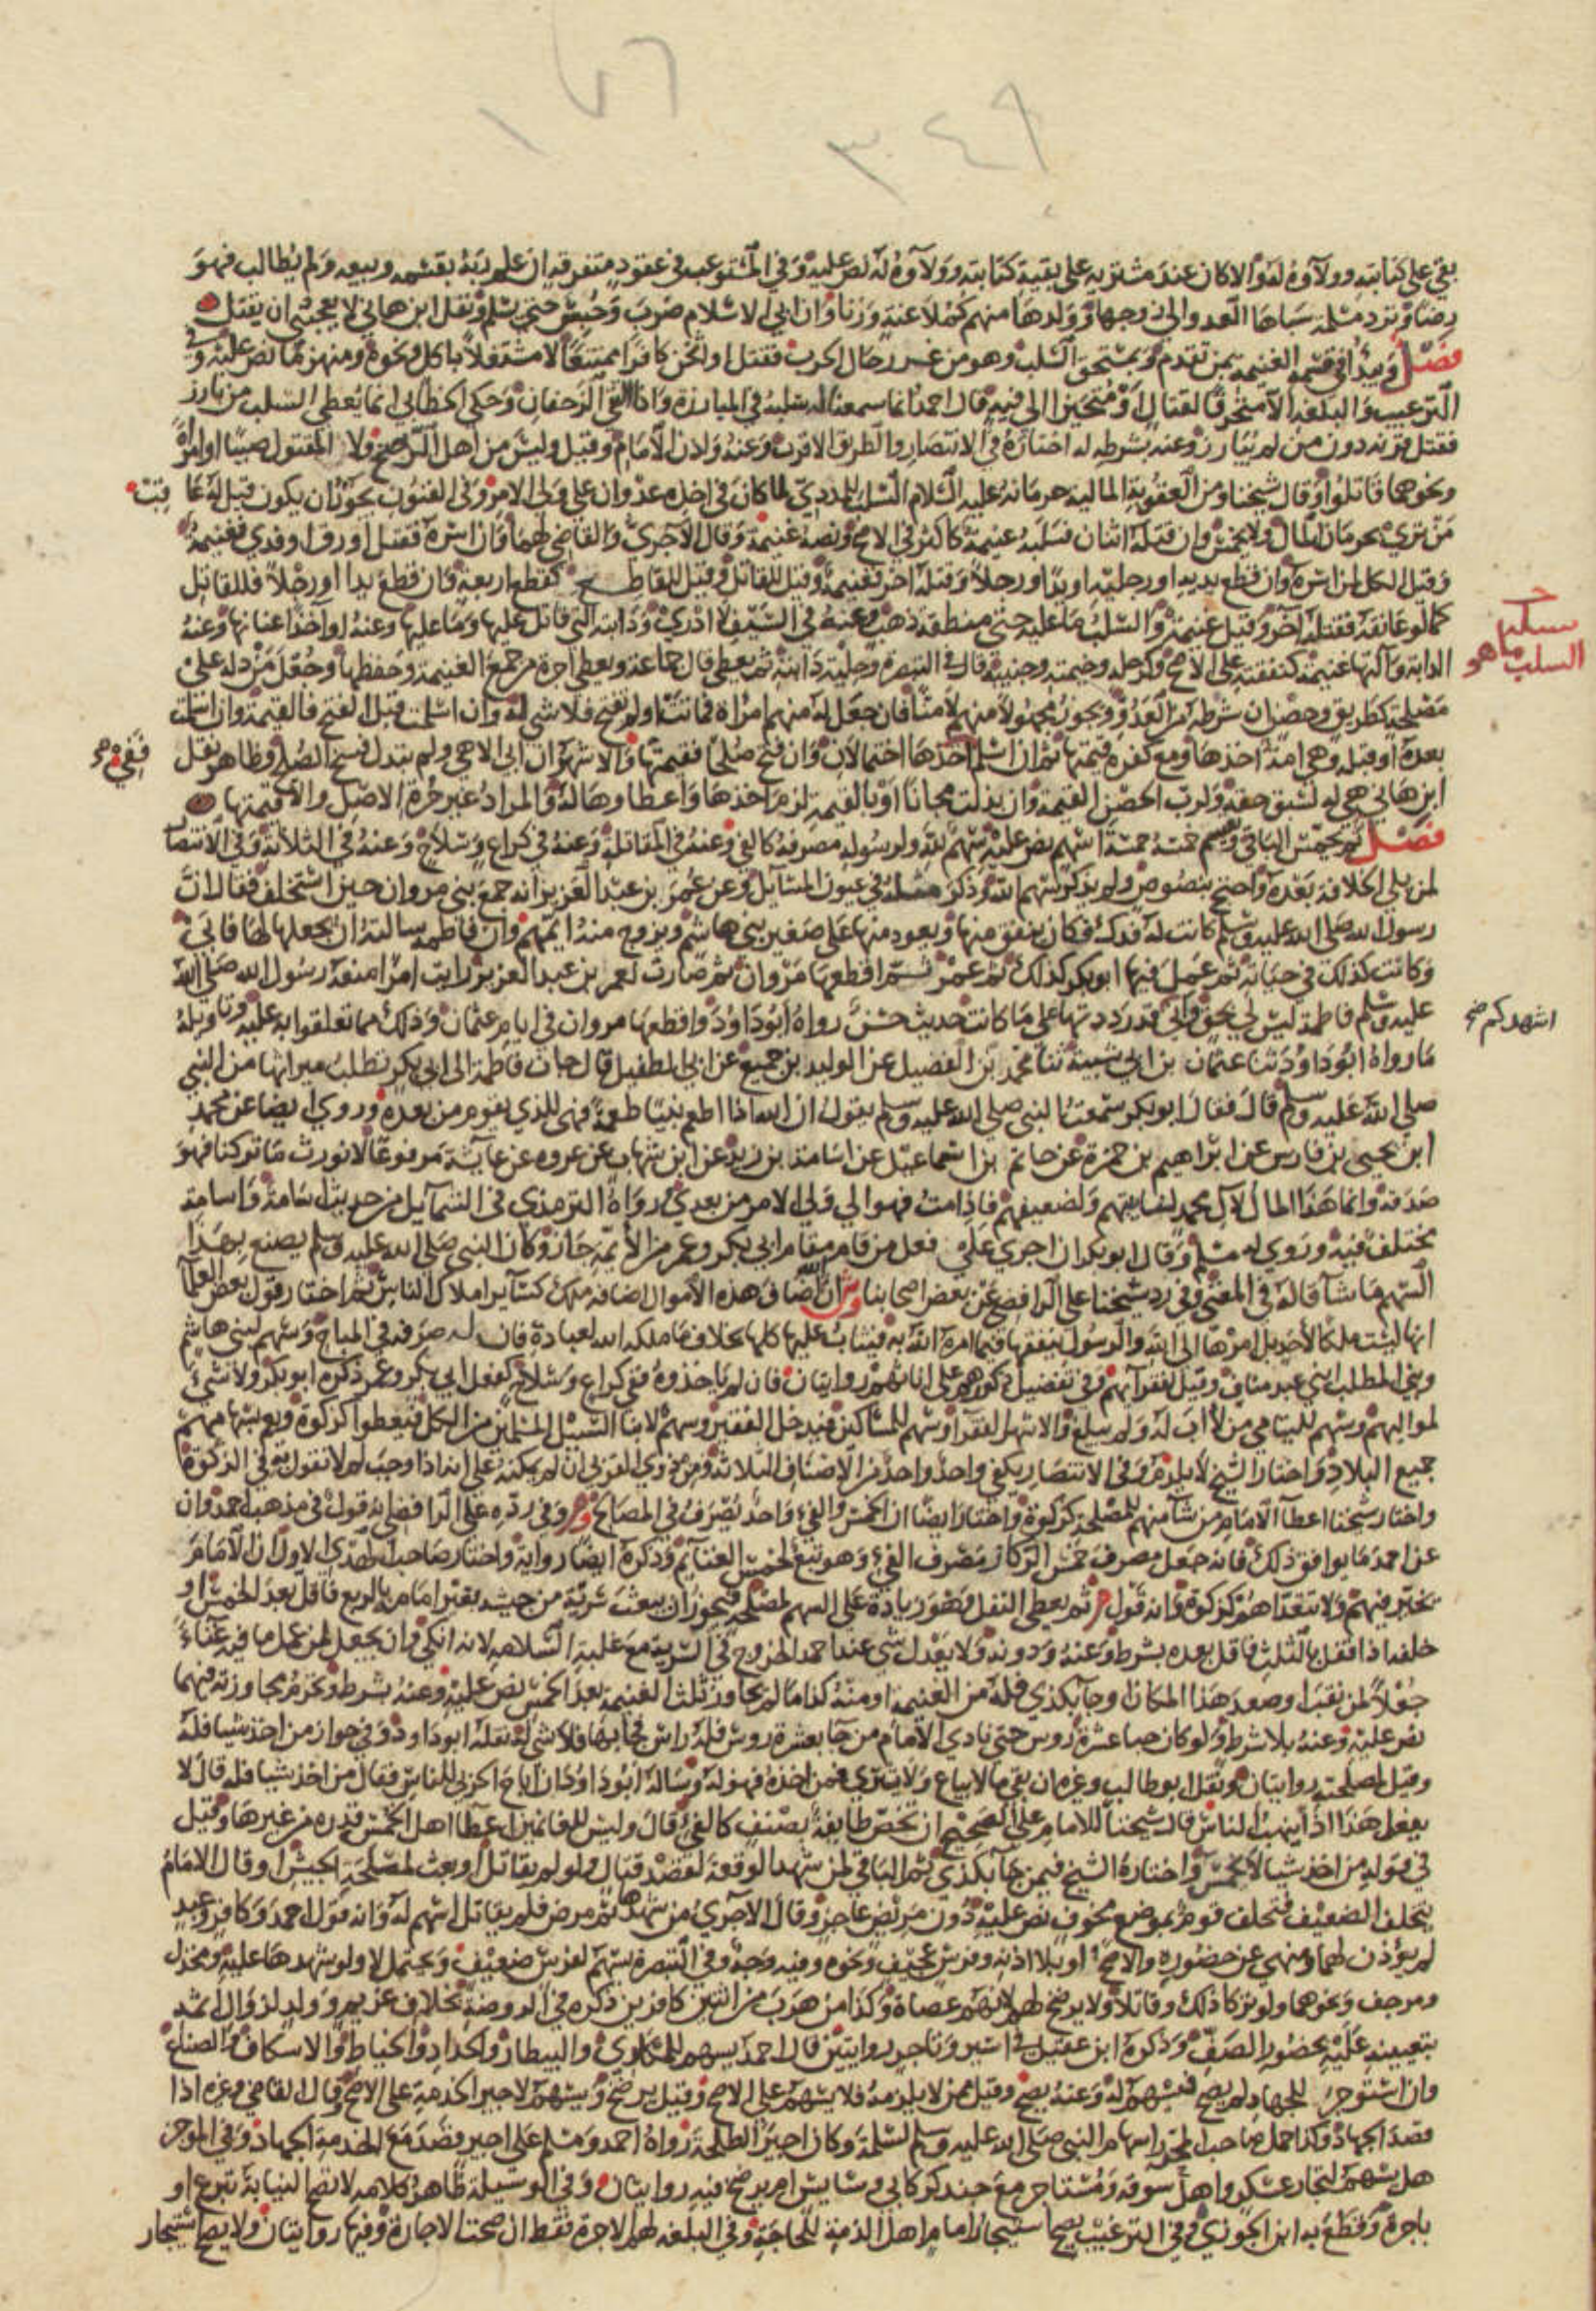 ١٧٦
٣٤٩
بقي على كتابته وولاؤه له والا كان عند مشتريه على بقية كتابته وولاؤه له نص عليه وفي
رضا وترد مسلمة سباها العدو الى زوجها وولدها منهم كملاعنة وزنا وان ابى الاسلام ضرب وحبس حتى يسلم ونقل ابن هاني لا يعجبني ان يقتل
فصل ويبدأ في قسم الغنيمة بمن تقدم ويستحق السلب وهو من غرر حال الحرب فقتل او اثخن كافرا ممتنعا لا مشتغلا باكل ونحوه ومنهزما نص عليه وفي
الترغيب والبلغة الا متحرفا لقتال او متحيزا الى فئة قال احمد انما سمعنا له سلبه في المبارزة واذا التقى الزحفان وحكى الخطابي انما يعطى السلب من بارز
فقتل قرنه دون من لم يبارز وعنه بشرطه له اختاره في الانتصار والطريق الاقرب وعنه واذن الامام وقيل وليس من اهل الرضخ ولا المقتول صبيا او امراة
ونحوهما قاتلوا وقال شيخنا ومن العقوبة المالية حرمانه عليه السلام السلب للمددي لما كان في اخذه عدوان على ولي الامر وفي الفنون يجوز ان يكون قيل له عاقبت
من ترى بحرمان المال ولا يخمس وان قتله اثنان فسلبه غنيمة كاكثر في الاصح ونصه غنيمة وقال الآجري والقاضي لهما وان اسره فقتل او رق او فدي فغنيمة
وقيل الكل لمن اسره وان قطع يديه او رجليه او يدا ورجلا وقتله اخر فغنيمة وقيل للقاتل وقيل للقاطع كقطع اربعة وان قطع يدا او رجلا فللقاتل
كما لو عانقه فقتله آخر وقيل غنيمة والسلب ما عليه حتى منطقة ذهب وعنه في السيف لا ادري ودابته التي قاتل عليها وما عليها وعنه او آخذا عنانها وعنه
الدابة وآلتها غنيمة كنفقته على الاصح وكرحله وخيمته وجنيبه قال في التبصرة وحلية دابته ثم يعطي قال جماعة ويعطي اجرة من جمع الغنيمة وحفظها وجعل من دله على
مصلحة كطريق وحصن ان شرطه من العدو ويجوز مجهولا منهم لا منا فان جعل له منهم امراة فماتت او لم تفتح فلا شي له وان اسلمت قبل الفتح فالقيمة وان اسلمت
بعده او قبله وهي امة اخذها ومع كفره قيمتها ثم ان اسلم اخذها احتمالان وان فتح صلحا فقيمتها والاشهر ان ابى الا هي ولم تبذل فسخ الصلح وظاهر نقل
ابن هاني هي له لسبق حقه ولرب الحصن القيمة وان بذلت مجانا او بالقيمة لزم اخذها واعطاوها له والمراد غير حرة الاصل والا قيمتها
فصل ثم يخمس الباقي ويقسم خمسه خمسة اسهم نص عليه سهم لله ولرسوله مصرفه كالفيء وعنه في المقاتلة وعنه في كراع وسلاح وعنه في الثلاثة وفي الانتصار
لمن يلي الخلافة بعده واحتج بنصوص ولم يذكر سهم الله وذكر مثله في عيون المسايل وعن عمر بن عبد العزيز انه جمع بني مروان حين استخلف فقال ان
رسول الله صلى الله عليه وسلم كانت له فدك فكان ينفق منها ويعود منها على صغير بني هاشم ويزوج منه ايمهم وان فاطمة سالته ان يجعلها لها فابى
وكانت كذلك في حياته ثم عمل فيها ابو بكر كذلك ثم عمر ثم اقطعها مروان ثم صارت لعمر بن عبد العزيز رايت امرا منعه رسول الله صلى الله
عليه وسلم فاطمة ليس لي بحق واني قد رددتها على ما كانت حديث حسن رواه ابو داود واقطعها مروان في ايام عثمان وذلك مما تعلقوا به عليه وتاويله
ما رواه ابو داود ثنا عثمان بن ابي شيبة ثنا محمد بن الفضيل عن الوليد بن جميع عن ابي الطفيل قال جات فاطمة الى ابي بكر تطلب ميراثها من النبي
صلى الله عليه وسلم قال فقال ابو بكر سمعت النبي صلى الله عليه وسلم يقول ان الله اذا اطعم نبيا طعمة فهي للذي يقوم من بعده وروي ايضا عن محمد
ابن يحيى بن فارس عن ابراهيم بن حمزة عن حاتم بن اسماعيل عن اسامة بن زيد عن ابن شهاب عن عروة عن عايشة مرفوعا لا نورث ما تركنا فهو
صدقة وانما هذا المال لآل محمد لنايبتهم ولضيفهم فاذا مت فهو الى ولي الامر من بعدي رواه الترمذي في الشمايل من حديث اسامة واسامة
مختلف فيه وروى له مسلم وقال ابو بكر اجري على فعل من قام مقام ابي بكر وعمر من الائمة جاز وكان النبي صلى الله عليه وسلم يصنع بهذا
السهم ما شا قاله في المغني وفي رد شيخنا على الرافضي عن بعض اصحابنا وش ان الله اضاف هذه الاموال اضافة ملك كساير املاك الناس ثم اختار قول بعض العلما
انها ليست ملكا لاحد بل امرها الى الله والرسول ينفقها فيما امره الله به فيثاب عليها كلها بخلاف ما ملكه الله لعباده فان له صرفه في المباح وسهم لبني هاشم
وبني المطلب ابني عبد مناف وقيل لفقرائهم وفي تفضيل ذكورهم على اناثهم روايتان فان لم ياخذوه ففي كراع وسلاح كفعل ابي بكر وعمر ذكره ابو بكر ولا شي
لمواليهم وسهم لليتامى من لا اب له ولم يبلغ والاشهر الفقرا وسهم للمساكين فيدخل الفقير وسهم لابنا السبيل المسلمين من الكل فيعطوا كزكوة ويعم بسهامهم
جميع البلاد واختار الشيخ لا يلزم وفي الانتصار يكفي واحد واحد من الاصناف الثلاثة ومن ذوي القربى ان لم يمكنه على انه اذا وجب لم لا نقول به في الزكوة
واختار شيخنا اعطا الامام من شا منهم للمصلحة كزكوة واختار ايضا ان الخمس والفيء واحد يصرف في المصالح وم وفي رده على الرافضي انه قول في مذهب احمد وان
عن احمد ما يوافق ذلك فانه جعل مصرف خمس الركاز مصرف الفيء وهو تبع لخمس الغنايم وذكره ايضا رواية واختار صاحب الهدي الاول ان الامام
يخير فيهم ولا يتعداهم كزكوة وانه قول م ثم يعطي النفل وهو زيادة على السهم لمصلحة فيجوز ان يبعث سرية من جيشه تغير امامه بالربع فاقل بعد الخمس او
خلفه اذا قفل بالثلث فاقل بعده بشرط وعنه ودونه ولا يعدل شي عند احمد الخروج في السرية مع غلبة السلامة لانه انكى وان يجعل لمن عمل ما فيه غناء
جعلا لمن نقب او صعد هذا المكان او جا بكذا فله من الغنيمة او منه كذا ما لم يجاوز ثلث الغنيمة بعد الخمس نص عليه وعنه بشرط وتحرم مجاوزته فيهما
نص عليه وعنه بلا شرط ولو كان جبا عشرة روس حتى نادى الامام من جا بعشرة روس فله راس فجا بها فلا شي له نقله ابو داود وفي جواز من اخذ شيا فله
وقيل لمصلحة روايتان ونقل ابو طالب وغيره ان بقي ما لا يباع ولا يشترى فمن اخذه فهو له وساله ابو داود ان اباح الحربي للناس فقال من اخذ شيا فله قال لا
يفعل هذا اذا ينهب الناس قال شيخنا للامام على الصحيح ان يخص طايفة بصنف كالفيء قال وليس للغانمين اعطا اهل الخمس قدره من غيرها وقيل
في قوله من اخذ شيا لا يخمس واختاره الشيخ فيمن جا بكذا ثم الباقي لمن شهد الوقعة لقصد قتال ولو لم يقاتل او بعث لمصلحة الجيش او قال الامام
يتخلف الضعيف فتخلف قوم بموضع مخوف نص عليه دون مريض عاجز وقال الآجري من شهدها ثم مرض فلم يقاتل اسهم له وانه قول احمد وكافر وعبد
لم يؤذن لهما ومنهي عن حضوره والاصح او بلا اذنه وفرس عجيف ونحوه وفيه وجه وفي التبصرة يسهم لفرس ضعيف ويحتمل لا ولو شهدها عليه ومخذل
ومرجف ونحوهما ولو تركا ذلك وقاتلا ولا يرضخ لهم لانهم عصاة وكذا من هرب من اثنين كافرين ذكره في الروضة بخلاف غريم وولد لزوال اثمه
بتعيينه عليه بحضور الصف وذكره ابن عقيل في اسير وتاجر روايتين قال احمد يسهم للمكاري والبيطار والحداد والخياط والاسكاف والصناع
وان استوجر للجهاد لم يصح فيسهم له وعنه يصح وقيل ممن لا يلزمه فلا يسهم على الاصح وقيل يرضخ ويسهم لاجير الخدمة على الاصح وقال القاضي وغيره اذا
قصد الجهاد وكذا حمل صاحب المحرر اسهام النبي صلى الله عليه وسلم لسلمة وكان اجيرا لطلحة رواه احمد ومسلم على اجير قصد مع الخدمة الجهاد وفي الموجز
هل يسهم لتجار عسكر واهل سوقه ومستاجر مع جند كركابي وسايس ام يرضخ فيه روايتان وفي الوسيلة ظاهر كلامه لا تصح النيابة تبرعا او
باجرة وقطع به ابن الجوزي وفي الترغيب يصح استيجار امام اهل الذمة للحاجة وفي البلغة لهم الاجرة فقط ان صحت الاجارة وفيها روايتان ولا يصح استيجار
السلب ما هو
اشهدكم صح